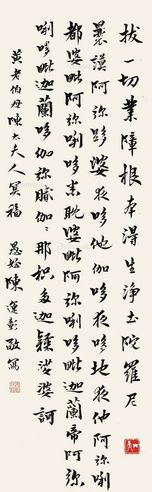 拔一切業障根本得生淨土陀羅尼
曩謨阿彌哆婆夜哆他伽哆夜哆地夜他阿彌唎
都婆毗阿彌唎哆悉耽婆毗阿彌唎哆毗迦蘭帝阿彌
唎哆毗迦蘭哆伽彌膩伽伽那枳多迦隸娑婆訶
黃老伯母陳太夫人冥福
愚姪陳運彰敬寫